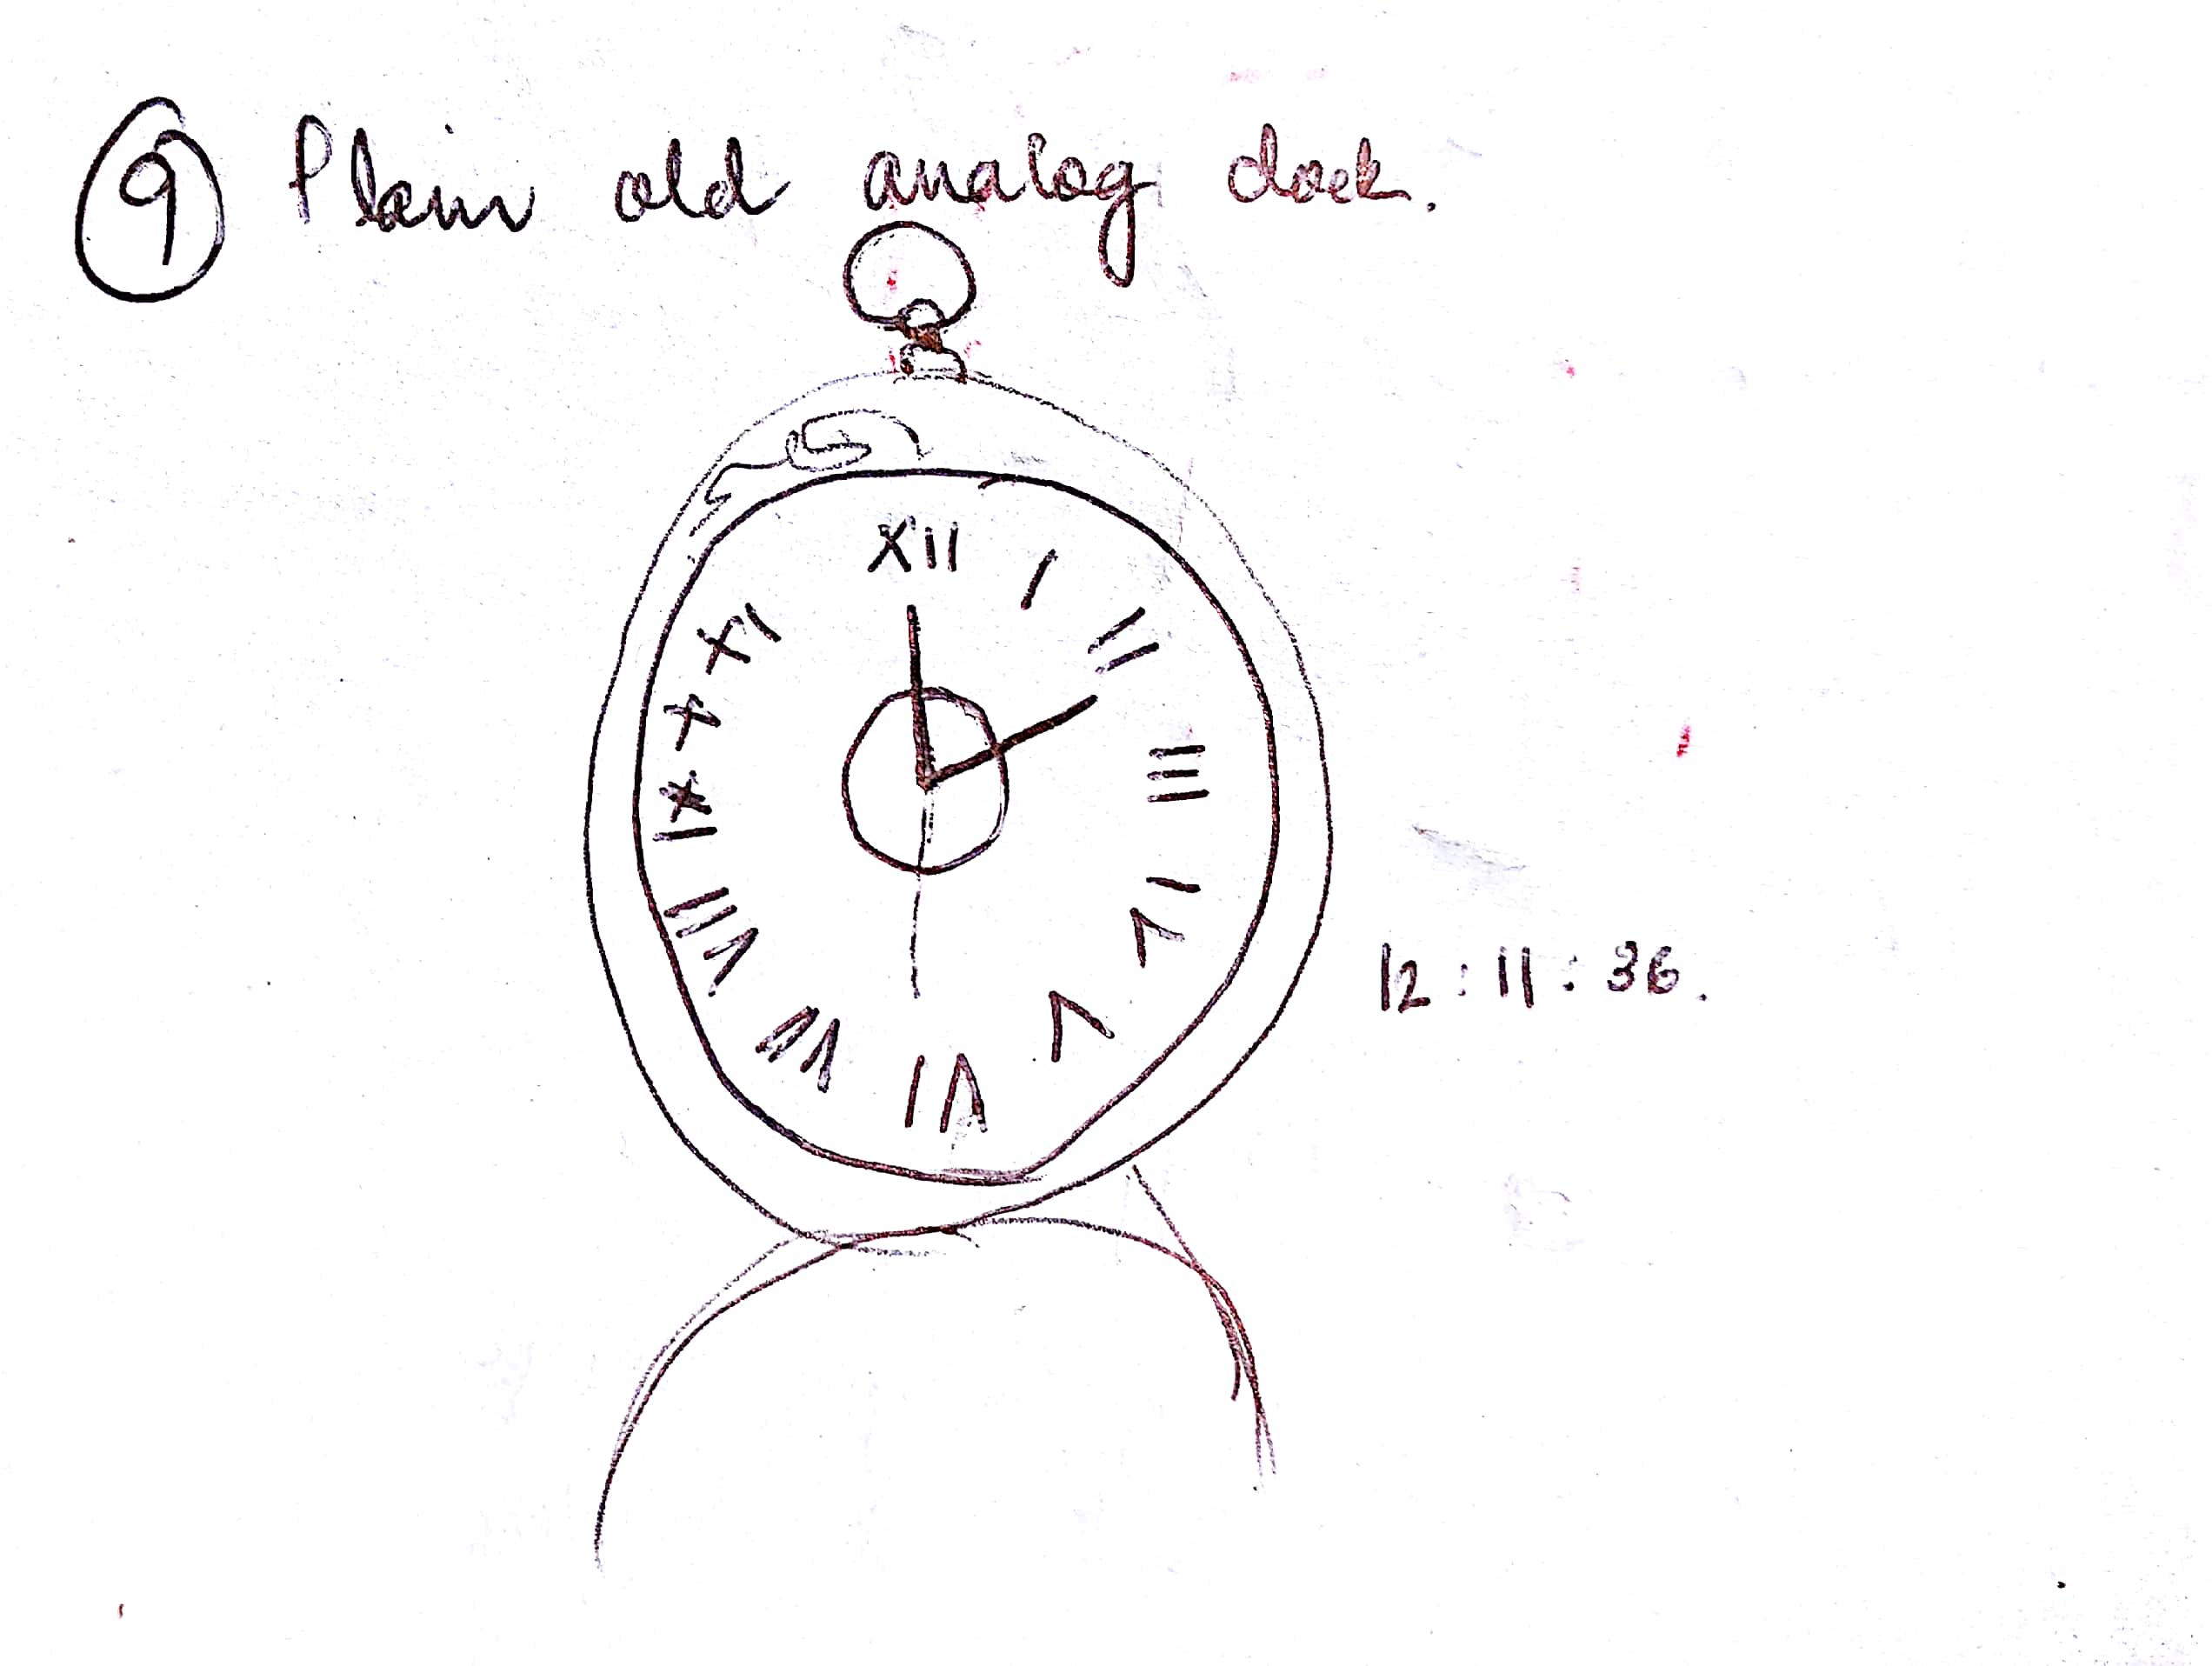 9 Plain old analog clock.
XII
I
II
III
IV
V
VI
VII
VIII
IX
X
XI
12 : 11 : 36.